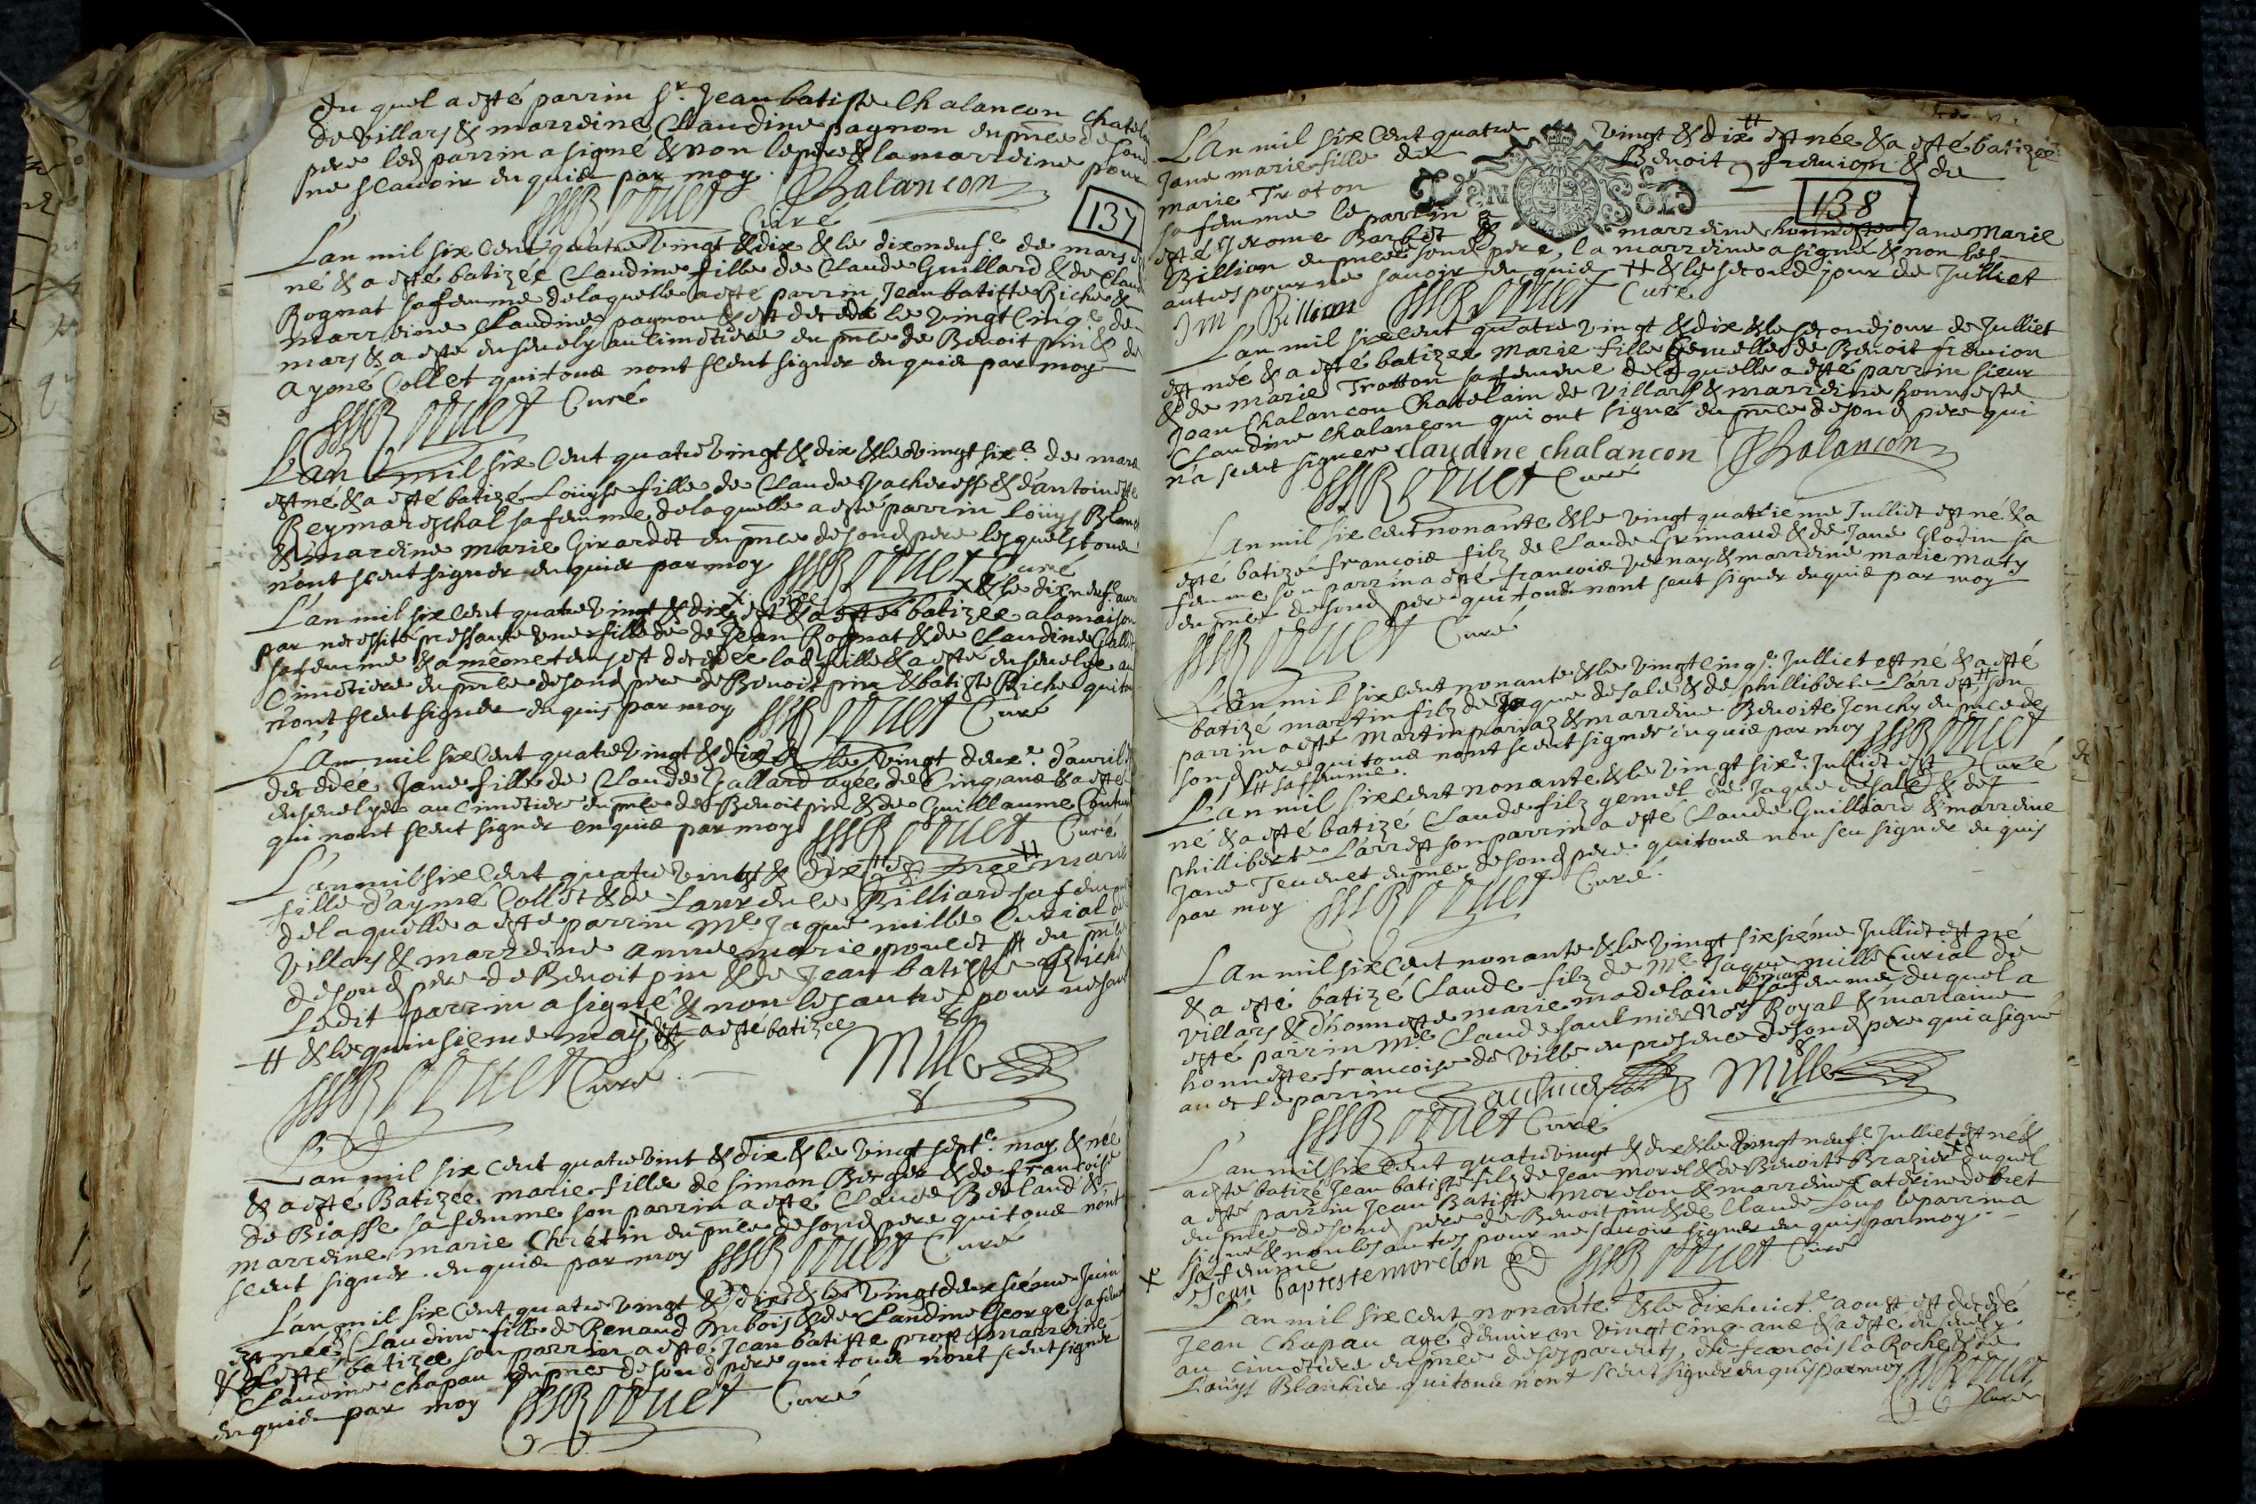 du quel a esté parrin Sr. Jean batiste Chalancon chatel
de villars & marrdine Claudine pagnon en pnce de sond
pere led parrin a signé & non le père & la marrdine pour
ne scavoir enquis par moy Chalancon
Curé
137
L'an mil six cent quatre vingt & dix & le dixneufe de mars
né & a esté batizée Claudine fille de Claude Guillard & de Clau
Rognat sa femme de laquelle a esté parrin Jean batiste Riche &
marrdine Claudine pagnon & est decedé le vingt cinqe de
mars & a esté ensevely au cimetiere en pnce de Benoit pin & de
Aymé Collet qui tous nont sceut signer enquis par moy
Curé
L'an mil six cent quatre vingt & dix & le vingt sixe de mars
est né & a esté batizé Louyse fille de Claude & d'antoinette
Reymareschal sa femme de laquelle a esté parrin Louys Blanc
& mardine marie Girardet en pnce de sond pere lesquels tous
nont sceut signer enquis par moy Curé
x & le dixneufe avr
L'an mil six cent quatre vingt & dix x est née & a esté batizée a la maison
par necessité pressante une fille de Jean Rognat & de Claudine Gallet
sa femme & a mesme temps est decedée lad fille & a esté ensevelye au
cimetiere en pnce de sond pere de Benoit pin & batiste Riche qui tous
nont sceut signer enquis par moy Curé
L'an mil six cent quatre vingt & dix & le vingt deuxe d'avril
decedée Jane fille de Claude Gallard agée de cinq ans & a esté
ensevelyée au cimetiere en pnce de Benoit pin & de Guillaume
qui nont sceut signer enquis par moy Curé
L'an mil six cent quatre vingt & dix # est née # marie
fille d'aymé Collet & de Laurence Billiard sa femme
de laquelle a esté parrin Me Jaque mille Curial de
villars & marrdine anne marie poulet # en pnce
de sond pere de Benoit pin & de Jean batiste Riche
Ledit parrin a signé & non les autres pour ne scav
# & le quinsieme may & a esté batizée
Curé Mille
L'an mil six cent quatre vint & dix & le vingt septe may & née
& a esté Batizée marie fille de Simon Berger & de francoise
de Biasse sa femme son parrin a esté Claude Berland &
marrdine marie Chrétin en pnce de sond pere qui tous nont
sceut signer enquis par moy Curé
L'an mil six cent quatre vingt & dix & le vingtdeuxsiéme Juin
est née Claudine fille de Renaud Dubois & de Claudine George sa femme
& a esté batizée son parrin a esté Jean batiste prost & marrdine
Claudine Chapau en pnce de sond pere qui tous nont sceut signer
enquis par moy Curé
L'An mil six cent quatre vingt & dix # est née & a esté batizée
Jane marie fille de Benoit frerion & de
marie Troton
138
sa femme le parrin a
esté Jerome Barbet & marrdine honneste Jane Marie
Billion en pnce sond pere, la marrdine a signé & non les
autres pour ne savoir enquis # & le second jour de Julliet
JM Billion Curé
L'an mil six cent quatre vingt & dix & le second jour de Julliet
est née & a esté batizée marie fille gemelle de Benoit frerion
& de marie Trotton sa femme de laquelle a esté parrin sieur
Jean Chalancon Chatelain de villars & marrdine honneste
Claudine Chalancon qui ont signé en pnce de sond pere qui
n'a sceut signer claudine chalancon Chalancon
Curé
L'an mil six cent nonante & le vingt quatrieme Julliet est né & a
esté batizé francois filz de Claude Grimaud & de Jane Glodin sa
femme son parrin a esté francois Vernay & marrdine marie Maty
en pnce de sond pere qui tous nont sceut signer enquis par moy
Curé
L'an mil six cent nonante & le vingt cinqe Julliet est né & a esté
batizé martin filz de Jaque de sale & de phillibèrte Larrest # son
parrin a esté Martin pariaz & marrdine Benoite Jonchy en pnce de
sond pere qui tous nont sceut signer enquis par moy
# sa femme Curé
L'an mil six cent nonante & le vingt sixe Julliet est
né & a esté batizé Claude filz gemel de Jaque desalle & de
phillibèrte Larrest son parrin a esté Claude Guilliard & marrdine
Jane Tenenet en pnce de sond pere qui tous non seu signer enquis
par moy Curé
L'an mil six cent nonante & le vingt sixsiéme Julliet est né
& a esté batizé Claude filz de Me Jaque mille Curial de
villars & d'honneste marie madelaine sa femme duquel a
esté parrin Me Claude saulnier Nore Royal & marraine
honneste francoise de ville en presence de sond pere qui a signé
avec le parrin Saulnier Mille
Curé
L'an mil six cent quatre vingt & dix & le vingt neufe Julliet est né &
a esté batizé Jean batiste filz de Jean morel & de Benoite Brazier x duquel
a esté parrin Jean Batiste morelon & marrdine Caterine debret
en pnce de sond pere de Benoit pin & de Claude Loup le parrin a
signé & non les autres pour ne savoir signer enquis par moy
x sa femme
Jean baptiste morelon Curé
L'an mil six cent nonante & le dixhuicte aoust est decedé
Jean Chapau agé d'environ vingt cinq ans & a esté ensevely
au cimetiere en pnce de ses parents, de francois la Roche & de
Louys Blanchier qui tous nont sceut signer enquis par moy
Curé